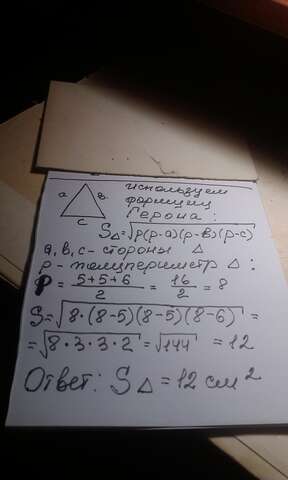 используем
формулу
Герона:
a
в
c
S△=√p(p-a)(p-в)(p-c)
a, в, c - стороны △
p - полупериметр △:
P = 5+5+6/2 = 16/2 = 8
S=√8·(8-5)(8-5)(8-6) =
=√8·3·3·2 = √144 = 12
Ответ: S△=12 см²